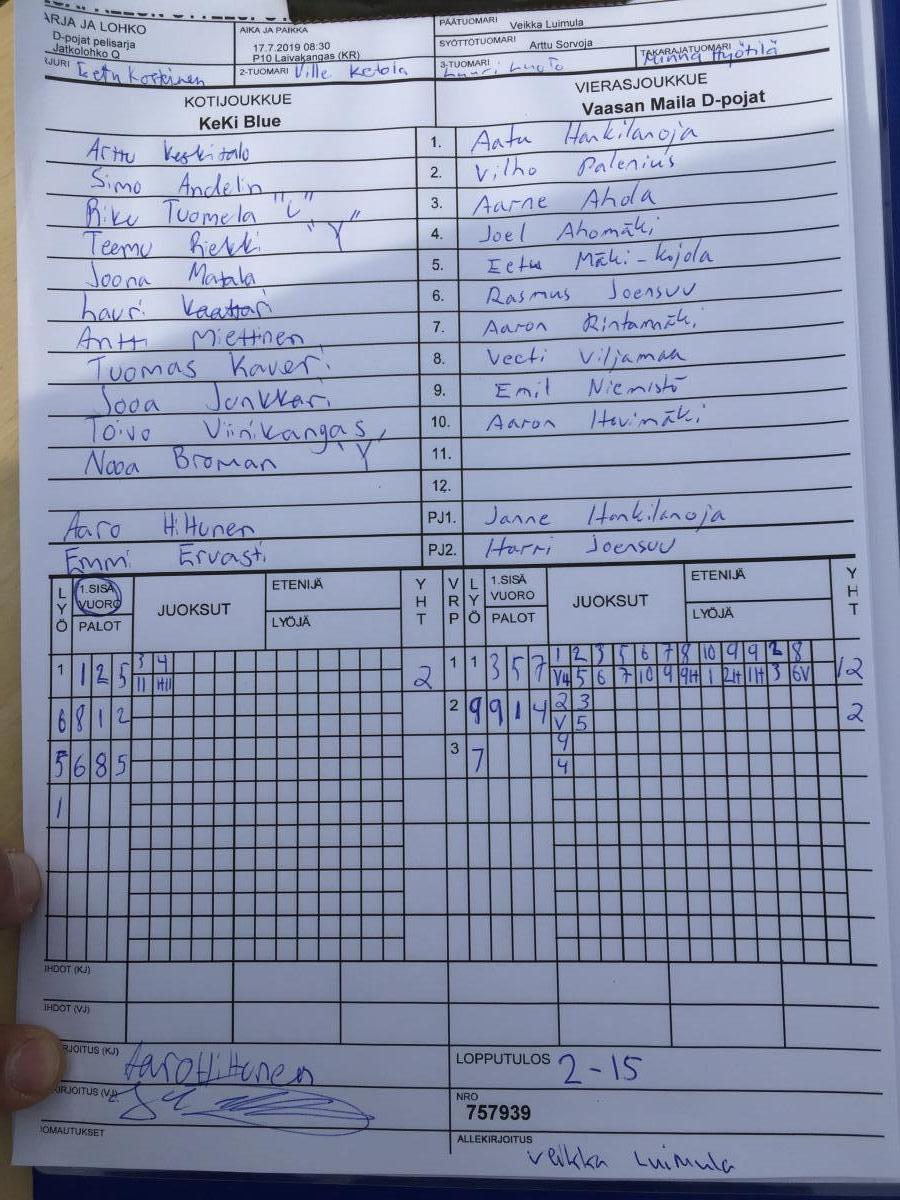 ARJA JA LOHKO
D-pojat pelisarja
Jatkolohko Q
AIKA JA PAIKKA
17.7.2019 08:30
P10 Laivakangas (KR)
PÄÄTUOMARI Veikka Luimula
SYÖTTÖTUOMARI Arttu Sorvoja
JURI Eetu Koskinen
2-TUOMARI Ville Ketola
3-TUOMARI
TAKARAJATUOMARI Minna Hyötilä
KOTIJOUKKUE
KeKi Blue
VIERASJOUKKUE
Vaasan Maila D-pojat
Arttu Keskitalo 1. Aatu Hankilanoja
Simo Andelin 2. Vilho Palenius
Riku Tuomela "L" 3. Aarne Ahola
Teemu Riekki "Y" 4. Joel Ahomäki
Joona Matala 5. Eetu Mäki-Kojola
Lauri Kaattari 6. Rasmus Joensuu
Antti Miettinen 7. Aaron Rintamäki
Tuomas Kaveri 8. Veeti Viljamaa
Jooa Junkkari 9. Emil Niemistö
Toivo Viirikangas 10. Aaron Hevimäki
Nooa Broman "Y" 11.
12.
Aaro Hiltunen PJ1. Janne Hankilanoja
Emmi Ervasti PJ2. Harri Joensuu
LYÖ 1.SISÄ VUORO PALOT JUOKSUT ETENIJÄ LYÖJÄ YHT VRP LYÖ 1.SISÄ VUORO PALOT JUOKSUT ETENIJÄ LYÖJÄ YHT
1 1 2 5 3 4 2 1 1 3 5 7 1 2 3 5 6 7 8 10 9 9 2 8 12
11 H11 V4 5 6 7 10 9 9H 1 2H 1H 3 6V
6 8 1 2 2 9 9 1 4 2 3 2
V 5
5 6 8 5 3 7 4
4
1
IHDOT (KJ)
IHDOT (VJ)
RJOITUS (KJ) Aaro Hiltunen
LOPPUTULOS 2-15
KIRJOITUS (VJ)
NRO
757939
OMAUTUKSET
ALLEKIRJOITUS
Veikka Luimula